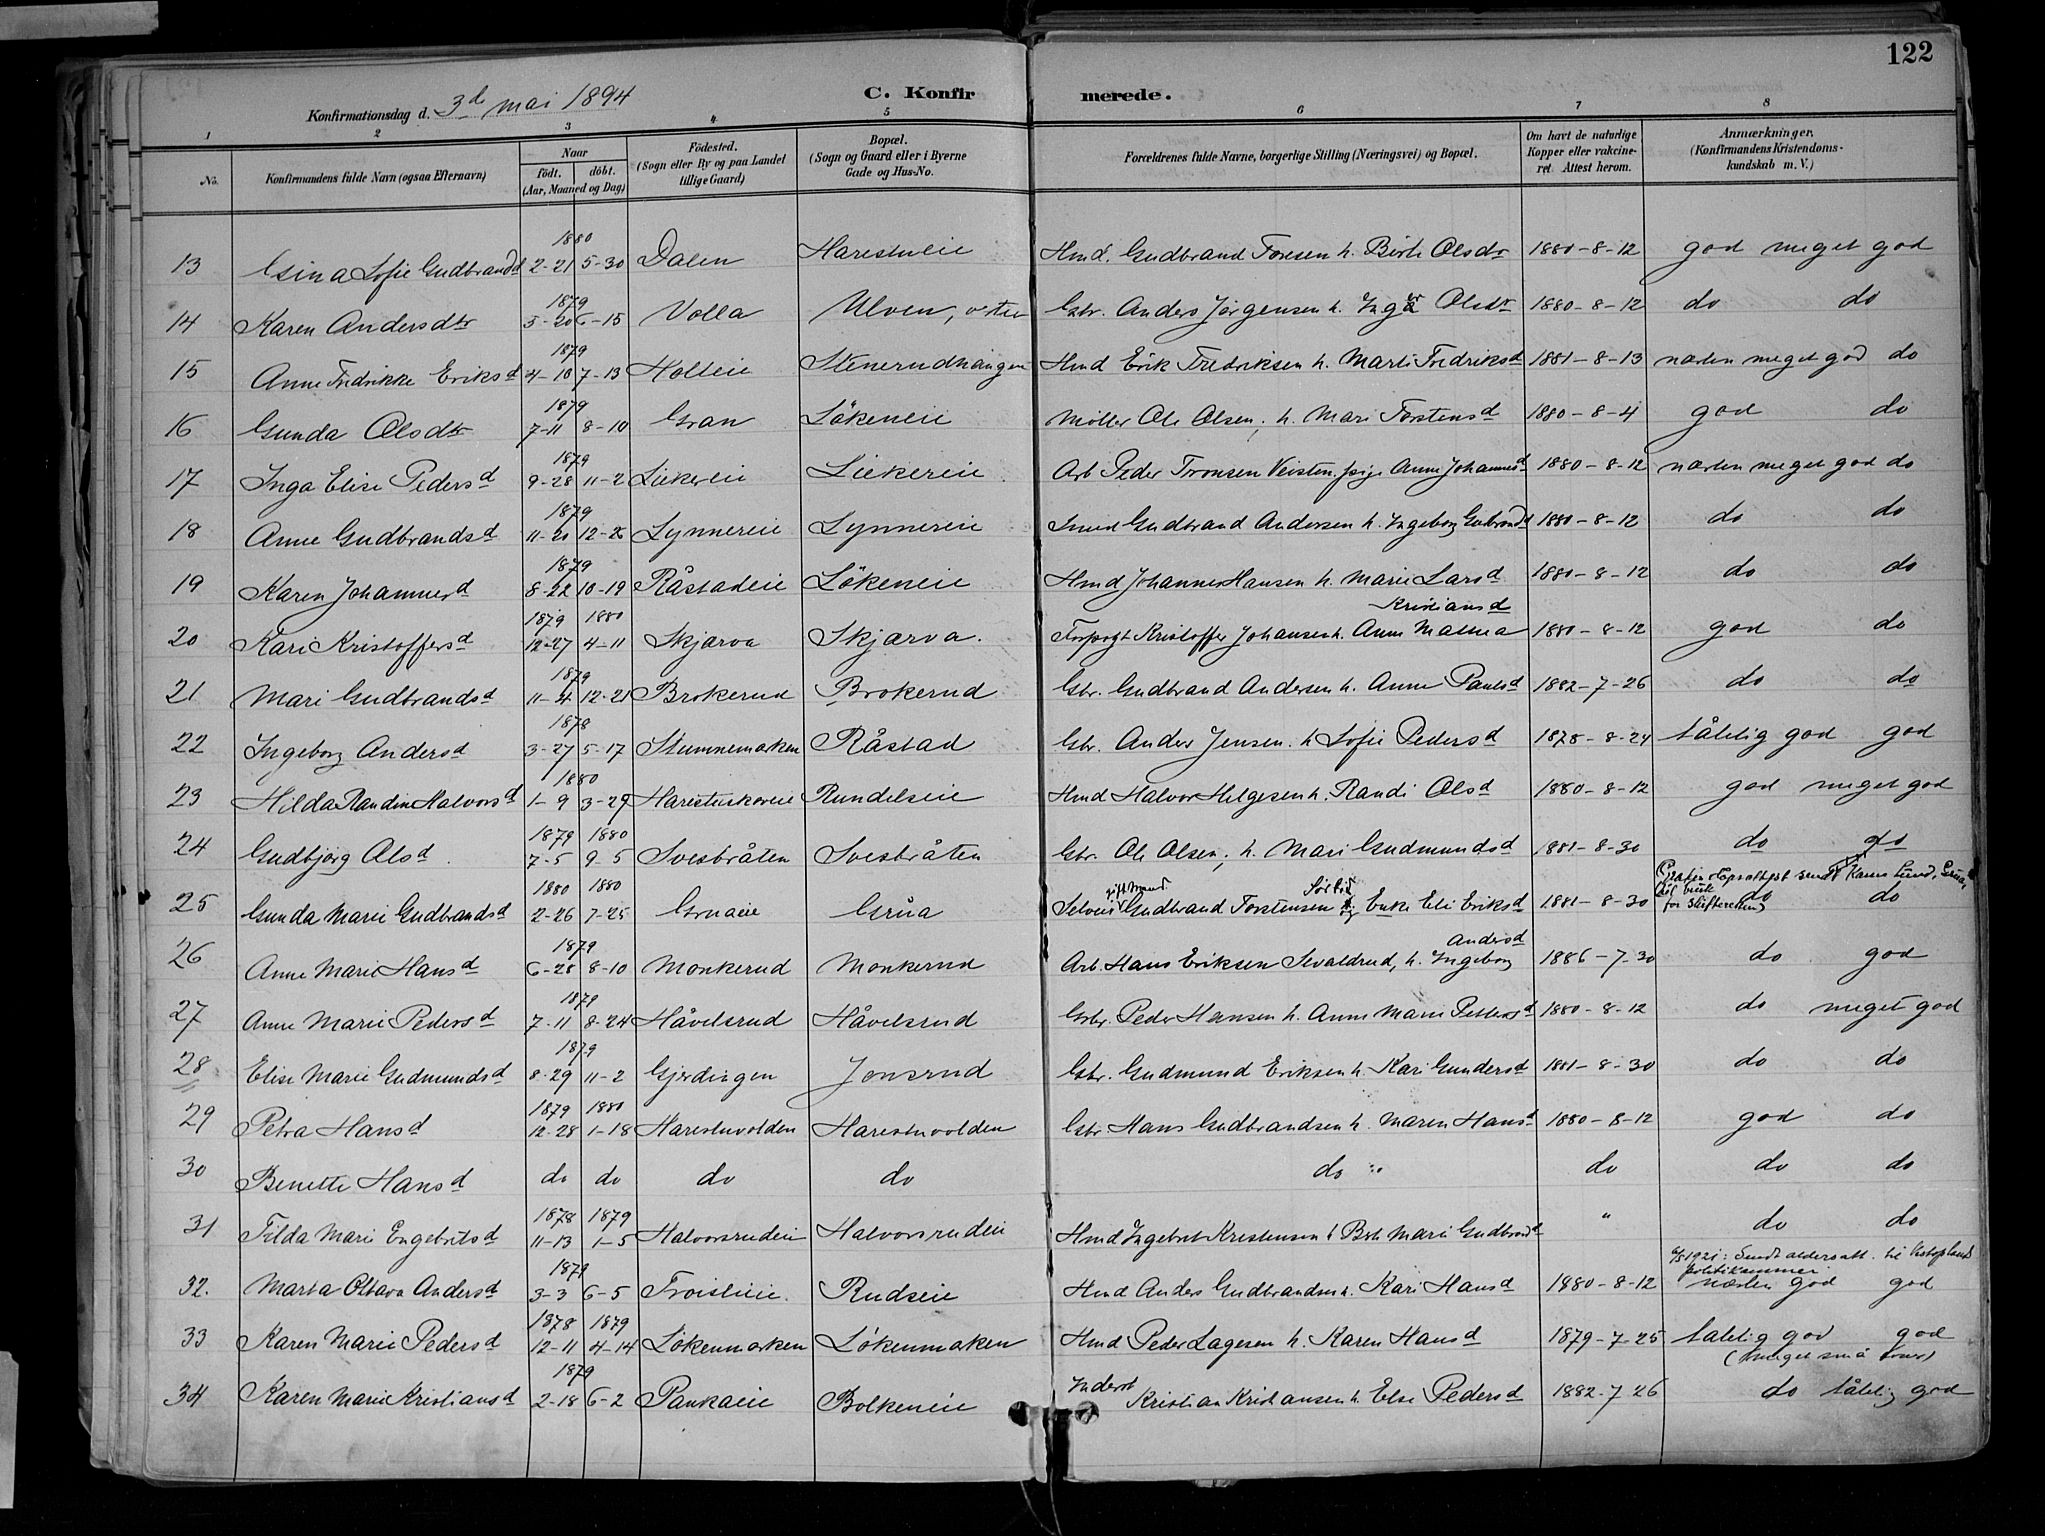 122
Konfirmationsdag d. 3d mai 1894
C. Konfir merede.
1 2 3 4 5 6 7 8
No. Konfirmandens fulde Navn (ogsaa Efternavn) Naar födt. döbt. (Aar, Maaned og Dag) Födested. (Sogn eller By og paa Landet tillige Gaard) Bopæl. (Sogn og Gaard eller i Byerne Gade og Hus-No. Forældrenes fulde Navne, borgerlige Stilling (Næringsvei) og Bopæl. Om havt de naturlige Kopper eller vakcineret. Attest herom. Anmærkninger. (Konfirmandens Kristendomskundskab m. V.)
1880
13 Sofie Gudbrandd 2-21 5-30 Dalen Harestueie Hmd. Gudbrand Toresen h. Birthe Olsdr 1880-8-12 god meget god
1879
14 Karen Andersdtr 5-20 6-15 Volla Ulven, Gbr. Anders Jörgensen h. Olsdr 1880-8-12 do do
1879
15 Anne Fredrikke Eriksd 4-10 7-13 Holteie Hmd Erik Fredriksen h. Marti Fredriksd 1881-8-13 næsten meget god do
1879
16 Gunda Olsdtr 7-11 8-10 Gran Lökeneie Möller Ole Olsen, h. Mari Torstensd 1880-8-4 god do
1879
17 Inga Elise Pedersd 9-28 11-2 Liekereie Arb Peder Tronsen pige Anne Johannesd 1880-8-12 næsten meget god do
1879
18 Anne Gudbrandsd 11-20 12-26 Lynnereie Lynnereie Smed Gudbrand Andersen h. Ingeborg Gudbrandd 1880-8-12 do do
1879
19 Karen Johannesd 8-22 10-19 Råstadeie Lökeneie Hmd Johannes Hansen h. Marie Larsd 1880-8-12 do do
1879 1880 Kristiansd
20 Kari Kristoffersd 12-27 4-11 Skjærva Skjærva. Kristoffer Johansen h. Anne Mathea 1880-8-12 god do
1879
21 Mari Gudbrandsd 11-4 12-21 Brokerud Brokerud Gbr. Gudbrand Andersen h. Anne Paulsd 1882-7-26 do do
1878
22 Ingeborg Andersd 3-27 5-17 Stumnemarken Råstad Gbr. Anders Jensen h Sofie Pedersd 1878-8-24 tålelig god god
1880
23 Hilda Randine Halvorsd 1-9 3-29 Rundelseie Hmd Halvor Helgesen h. Randi Olsd 1880-8-12 god meget god
1879 1880
24 Gudbjörg Olsd 7-5 9-5 Svesbråten Svesbråten Gbr. Ole Olsen, h. Mari Gudmundsd 1881-8-30 do do
1880 1880 gift Mand Karen Lund, Grua,
25 Gunda Marie Gudbrandsd 2-26 7-25 Gruaeie Grua Selveier Gudbrand Torstensen Enke Eli Eriksd 1881-8-30 for do do
1879 Andersd
26 Anne Marie Hansd 6-28 8-10 Monkerud Monkerud Arb. Hans Eriksen h. Ingeborg 1886-7-30 do god
1879
27 Anne Marie Pedersd 7-11 8-24 Håvelsrud Håvelsrud Gbr. Peder Hansen h. Anne Marie Pettersd 1880-8-12 do meget god
1879
28 Elise Marie Gudmundsd 8-29 11-2 Gjerdingen Jonsrud Gbr. Gudmund Eriksen h. Kari Gundersd 1881-8-30 do do
1879 1880
29 Petra Hansd 12-28 1-18 Harestuvolden Harestuvolden Gbr Hans Gudbrandsen h. Maren Hansd 1880-8-12 god do
30 Benette Hansd do do do do do do do do
1878 1879
31 Tilda Marie Engebretsd 11-13 1-5 Halvorsrudeie Halvorsrudeie Hmd Ingebret Kristensen h Berthe Marie Gudbrandd " do do
1879 1921: Sendt aldersatt. til politikammer
32. Marta Oktava Andersd 3-3 6-5 Rudseie Hmd Anders Gudbrandsen h. Kari Hansd 1880-8-12 næsten god god
1878 1879
33 Karen Marie Pedersd 12-11 4-14 Lökenmarken Lökenmarken Hmd Peder Lagesen h. Karen Hansd 1879-7-25 tålelig god god
1879 (meget små evner)
34 Karen Marie Kristiansd 2-18 6-2 Pankaeie Bolkeneie Inderst Kristian Kristiansen h. Else Pedersd 1882-7-26 do tålelig god